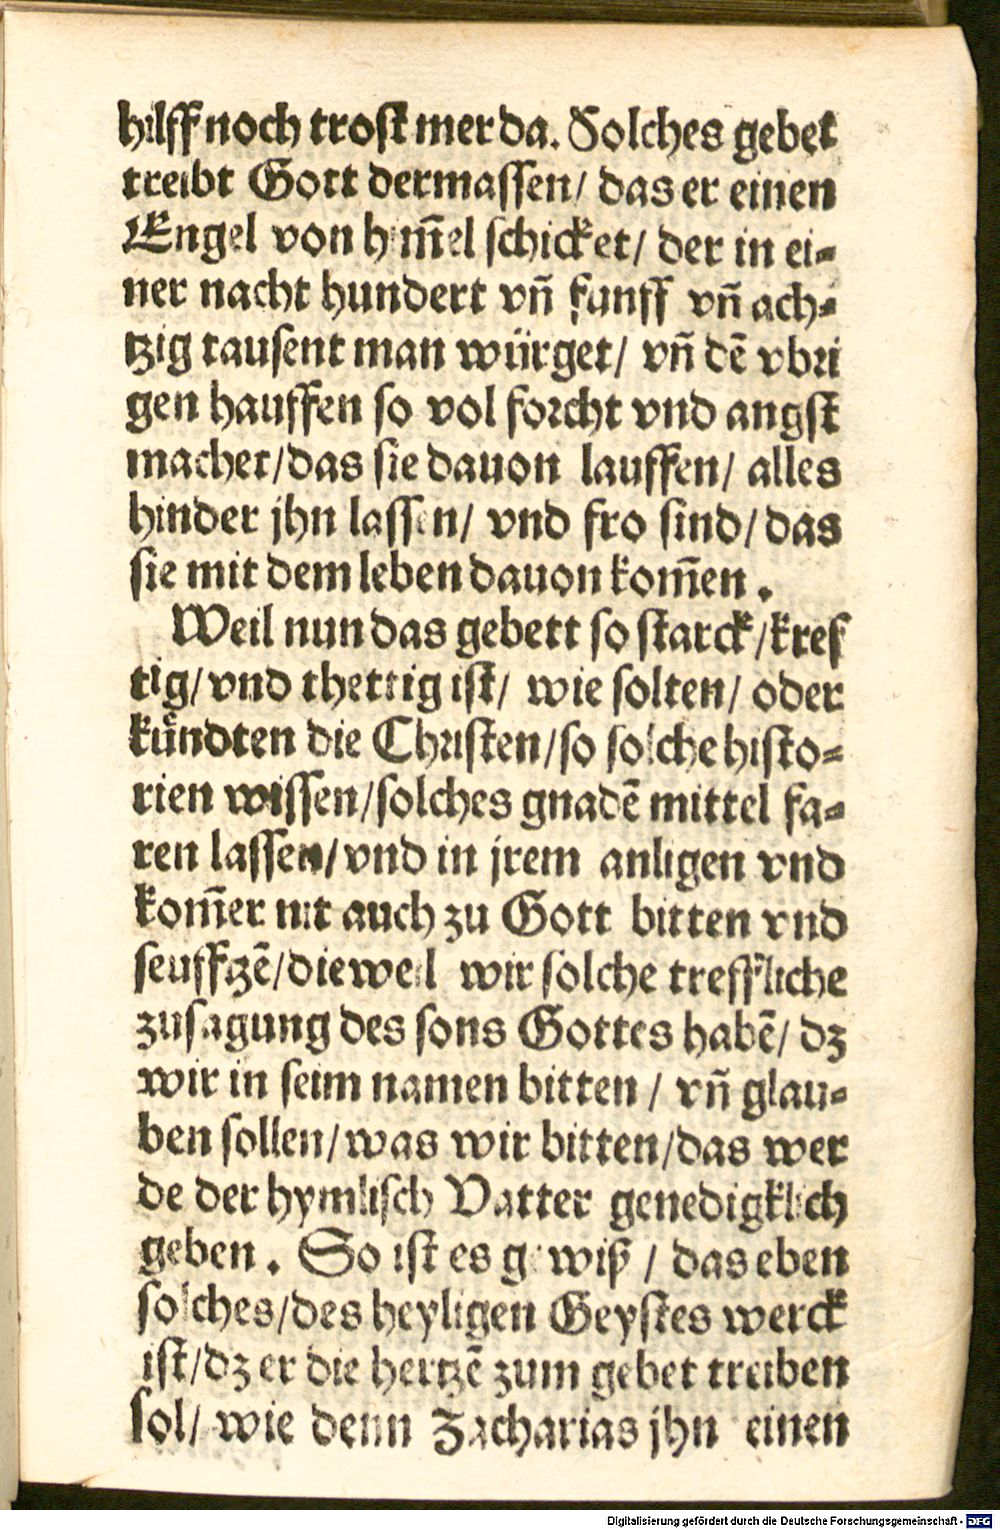 hilff noch trost mer da. Solches gebet
treibt Gott dermassen/ das er einen
Engel von him̃el schicket/ der in ei⸗
ner nacht hundert vñ funff vñ ach⸗
tzig tausent man würget/ vñ dẽ vbri
gen hauffen so vol forcht vnd angst
machet/das sie dauon lauffen/ alles
hinder jhn lassen/ vnd fro sind/das
sie mit dem leben dauon kom̃en.
Weil nun das gebett so starck/kref
tig/vnd thettig ist/ wie solten/ oder
kündten die Christen/so solche histo⸗
rien wissen/solches gnadẽ mittel fa⸗
ren lassen/vnd in jrem anligen vnd
kom̃er nit auch zu Gott bitten vnd
seufftzẽ/dieweil wir solche treffliche
zusagung des sons Gottes habẽ/ dz
wir in seim namen bitten / vñ glau⸗
ben sollen/was wir bitten/das wer
de der hymlisch Vatter genedigklich
geben. So ist es gewiß / das eben
solches/des heyligen Geystes werck
ist/dz er die hertzẽ zum gebet treiben
sol/ wie denn Zacharias jhn einen
Digitalisierung gefördert durch die Deutsche Forschungsgemeinschaft - DFG